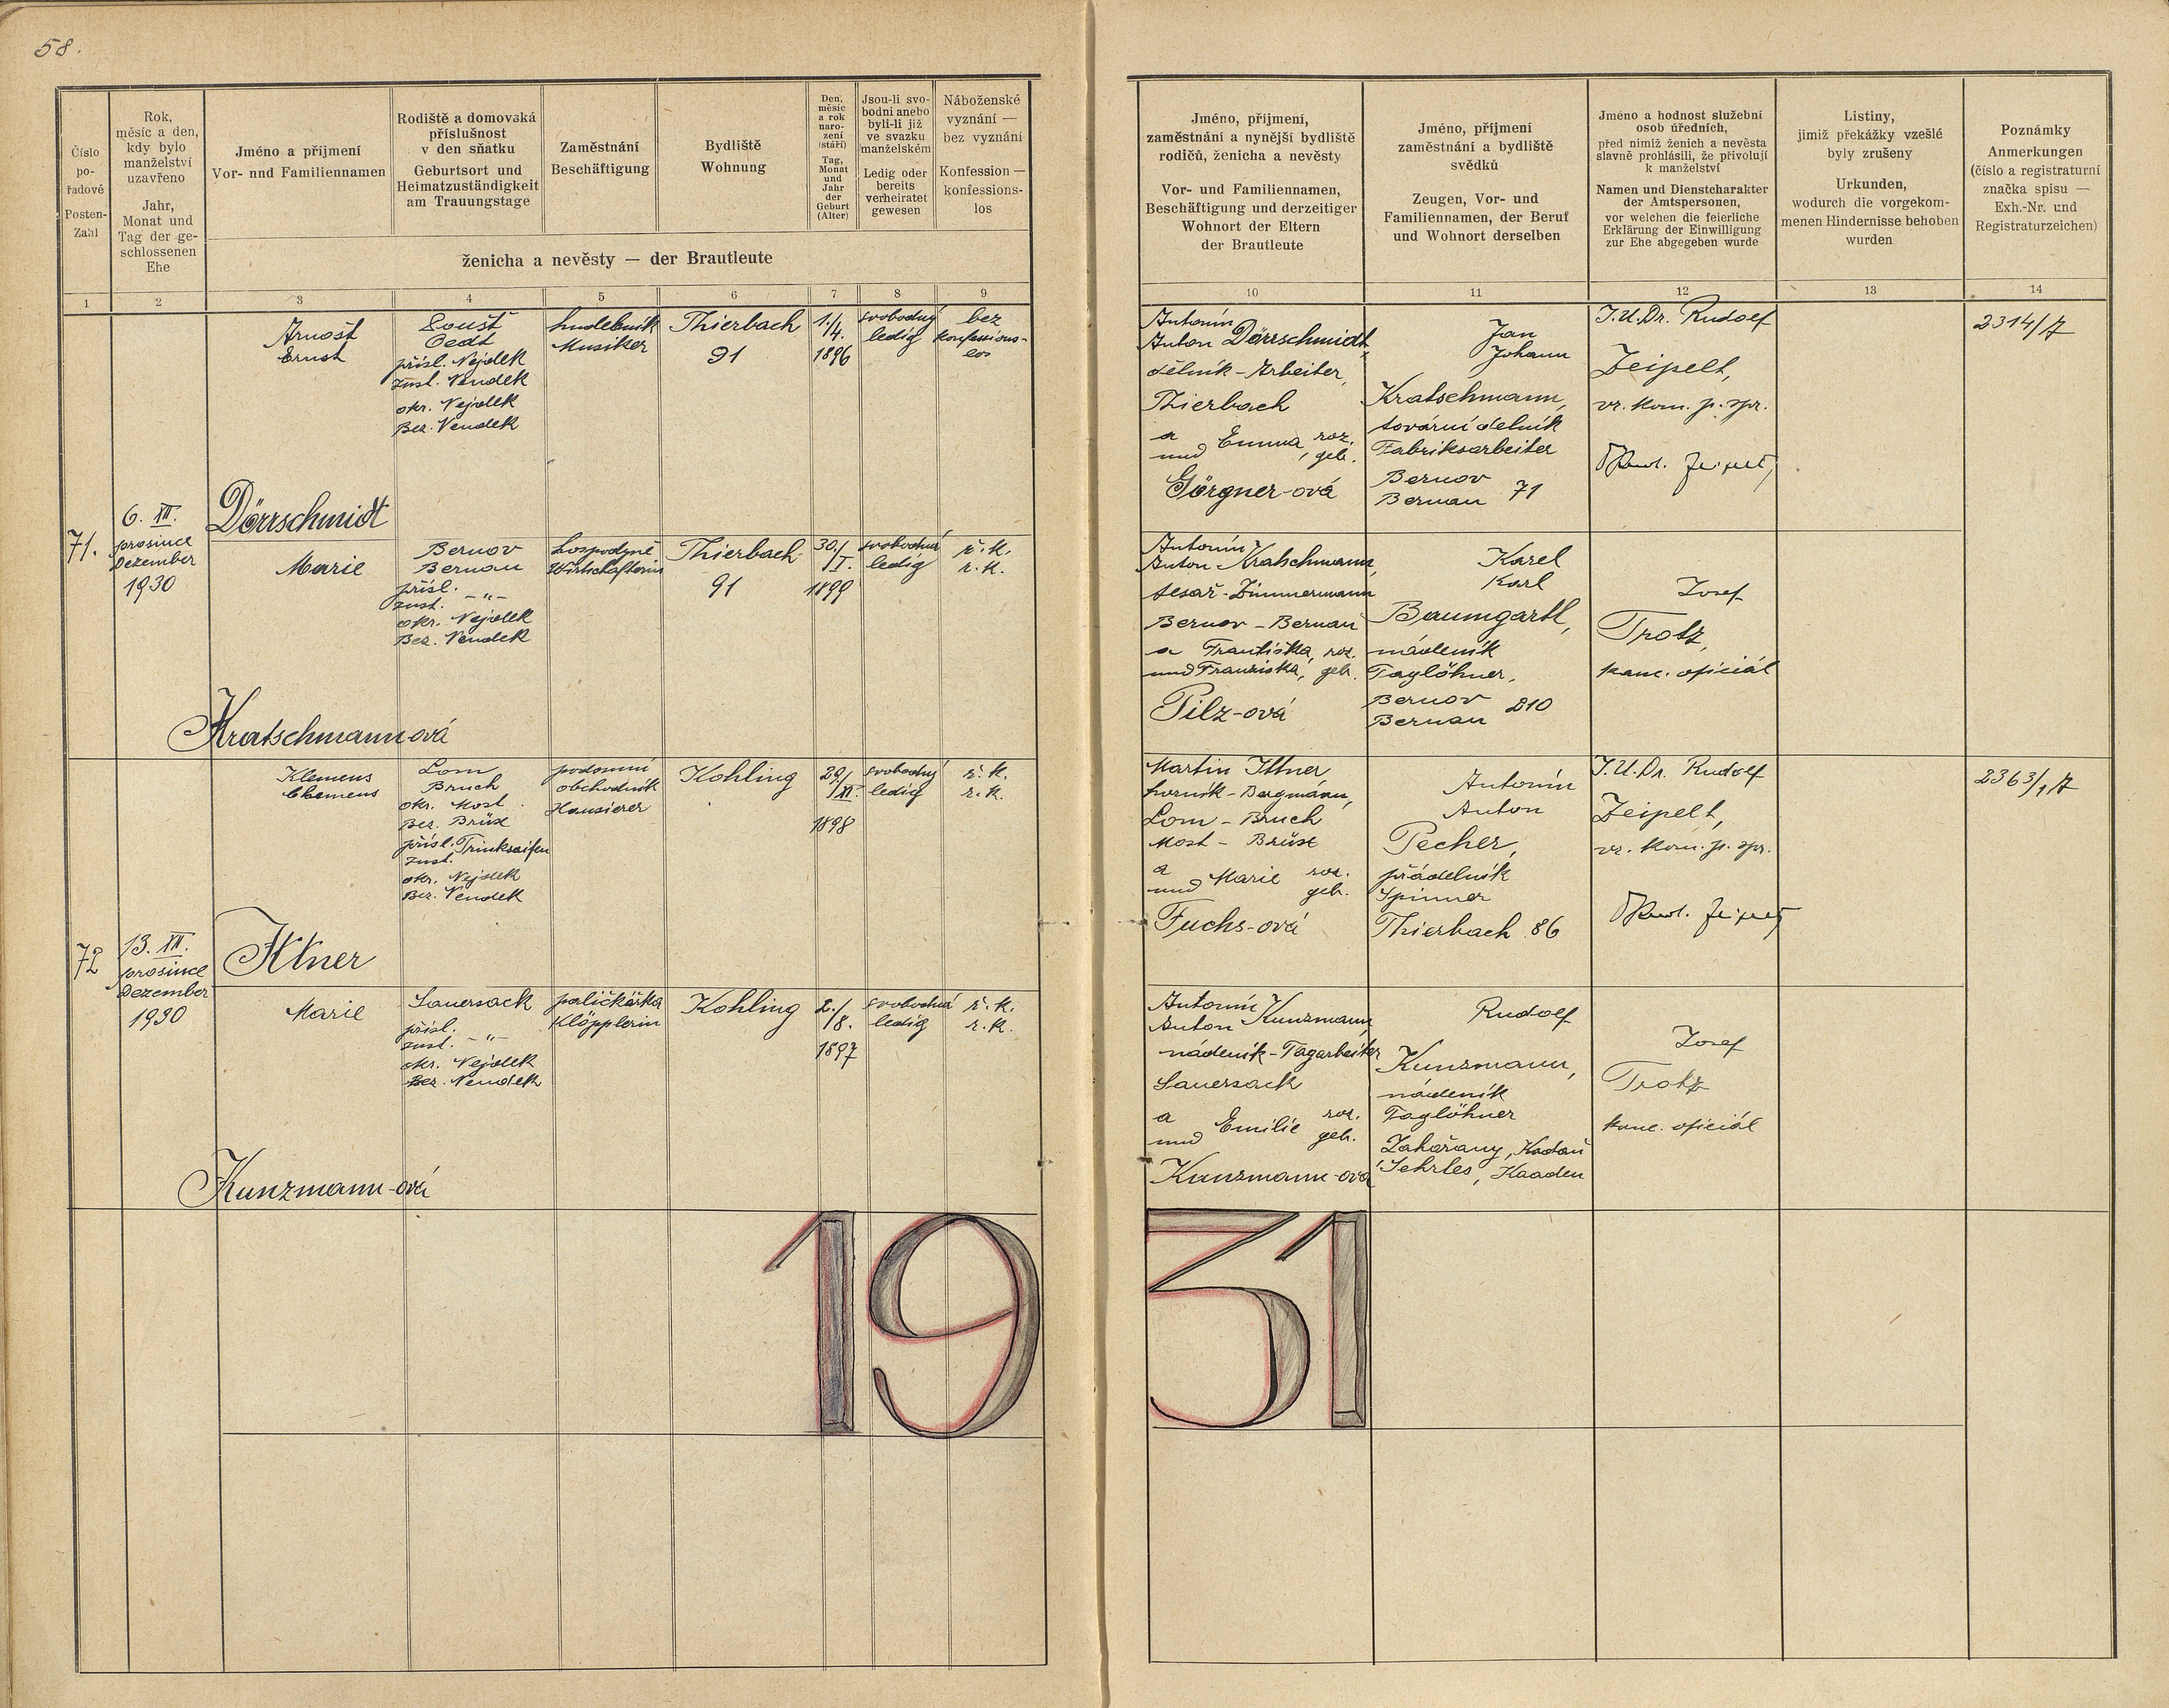 58.
Číslo
po-
řadové
Posten-
Zahl
Rok,
měsíc a den,
kdy bylo
manželství
uzavřeno
Jahr,
Monat und
Tag der ge-
schlossenen
Ehe
Jméno a příjmení
Vor- nnd Familiennamen
Rodiště a domovská
příslušnost
v den sňatku
Geburtsort und
Heimatzuständigkeit
am Trauungstage
Zaměstnání
Beschäftigung
Bydliště
Wohnung
Den,
měsíc
a rok
naro-
zení
(stáří)
Tag,
Monat
und
Jahr
der
Geburt
(Alter)
Jsou-li svo-
bodni anebo
byli-li již
ve svazku
manželském
Ledig oder
bereits
verheiratet
gewesen
Náboženské
vyznání —
bez vyznání
Konfession —
konfessions-
los
ženicha a nevěsty — der Brautleute
Jméno, příjmení,
zaměstnání a nynější bydliště
rodičů, ženicha a nevěsty
Vor- und Familiennamen,
Beschäftigung und derzeitiger
Wohnort der Eltern
der Brautleute
Jméno, příjmení
zaměstnání a bydliště
svědků
Zeugen, Vor- und
Familiennamen, der Beruf
und Wohnort derselben
Jméno a hodnost služební
osob úředních,
před nimiž ženich a nevěsta
slavně prohlásili, že přivolují
k manželství
Namen und Dienstcharakter
der Amtspersonen,
vor welchen die feierliche
Erklärung der Einwilligung
zur Ehe abgegeben wurde
Listiny,
jimiž překážky vzešlé
byly zrušeny
Urkunden,
wodurch die vorgekom-
menen Hindernisse behoben
wurden
Poznámky
Anmerkungen
(číslo a registraturní
značka spisu —
Exh.-Nr. und
Registraturzeichen)
1 2 3 4 5 6 7 8 9 10 11 12 13 14
71.
6. XII.
prosince
Dezember
1930
Arnošt
Ernst
Dörrschmidt
Poušť
Oedt
přísl. Nejdek
zust. Neudek
okr. Nejdek
Bez. Neudek
hudebník
Musiker
Thierbach
91
1./
4.
1896
svobodný
ledig
bez
konfessions-
los
Antonín
Anton Dörrschmidt,
dělník - Arbeiter,
Thierbach
a
und Emma, roz.
geb.
Görgner-ová
Jan
Johann
Kratschmann,
tovární dělník
Fabriksarbeiter
Bernov
Bernau 71
J.U.Dr. Rudolf
Zeipelt,
vr. kom. p. spr.
Zeipelt
2314/7
Marie
Kratschmann-ová
Bernov
Bernau
přísl.
zust. -"-
okr. Nejdek
Bez. Neudek
hospodyně
Wirtschafterin
Thierbach
91
30./
I.
1899
svobodná
ledig
ř. k.
r. k.
Antonín
Anton Kratschmann,
tesař - Zimmermann
Bernov - Bernau
a Františka, roz.
und Franziska, geb.
Pilz-ová
Karel
Karl
Baumgartl,
nádeník
Taglöhner,
Bernov
Bernau 210
Josef
Trotz,
kanc. oficiál
72
13. XII.
prosince
Dezember
1930
Klemens
Clemens
Ittner
Lom
Bruch
okr. Most
Bez. Brüx
přísl. Trinksaifen
zust.
okr. Nejdek
Bez. Neudek
podomní
obchodník
Hausierer
Kohling
29./
XI.
1898
svobodný
ledig
ř. k.
r. k.
Martin Ittner,
horník - Bergmann,
Lom - Bruch
Most - Brüx
a
und Marie roz.
geb.
Fuchs-ová
Antonín
Anton
Pecher,
přádelník
Spinner
Thierbach 86
J.U.Dr. Rudolf
Zeipelt,
vr. kom. p. spr.
Zeipelt
2363/1, 7
Marie
Kunzmann-ová
Sauersack
přísl.
zust. -"-
okr. Nejdek
Bez. Neudek
paličkářka
Klöpplerin
Kohling
2./
8.
1897
svobodná
ledig
ř. k.
r. k.
Antonín
Anton Kunzmann,
nádeník - Tagarbeiter
Sauersack
a
und Emilie roz.
geb.
Kunzmann-ová
Rudolf
Kunzmann,
nádeník
Taglöhner
Zahořany, Kadaň
Sehrles, Kaaden
Josef
Trotz
kanc. oficiál
1931